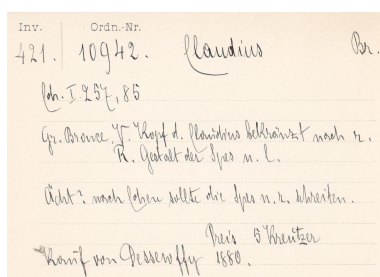 Inv. Ordn.-Nr.
421. 10942. Claudius Br.
Coh. I 257, 85
Gr. Bronce. V. Kopf d. Claudius bekränzt nach r.
R. Gestalt der Spes n. l.
Ächt? nach Cohen sollte die Spes n. r. schreiten.
Preis 5 Kreutzer
Kauf von Dessewffy 1880.